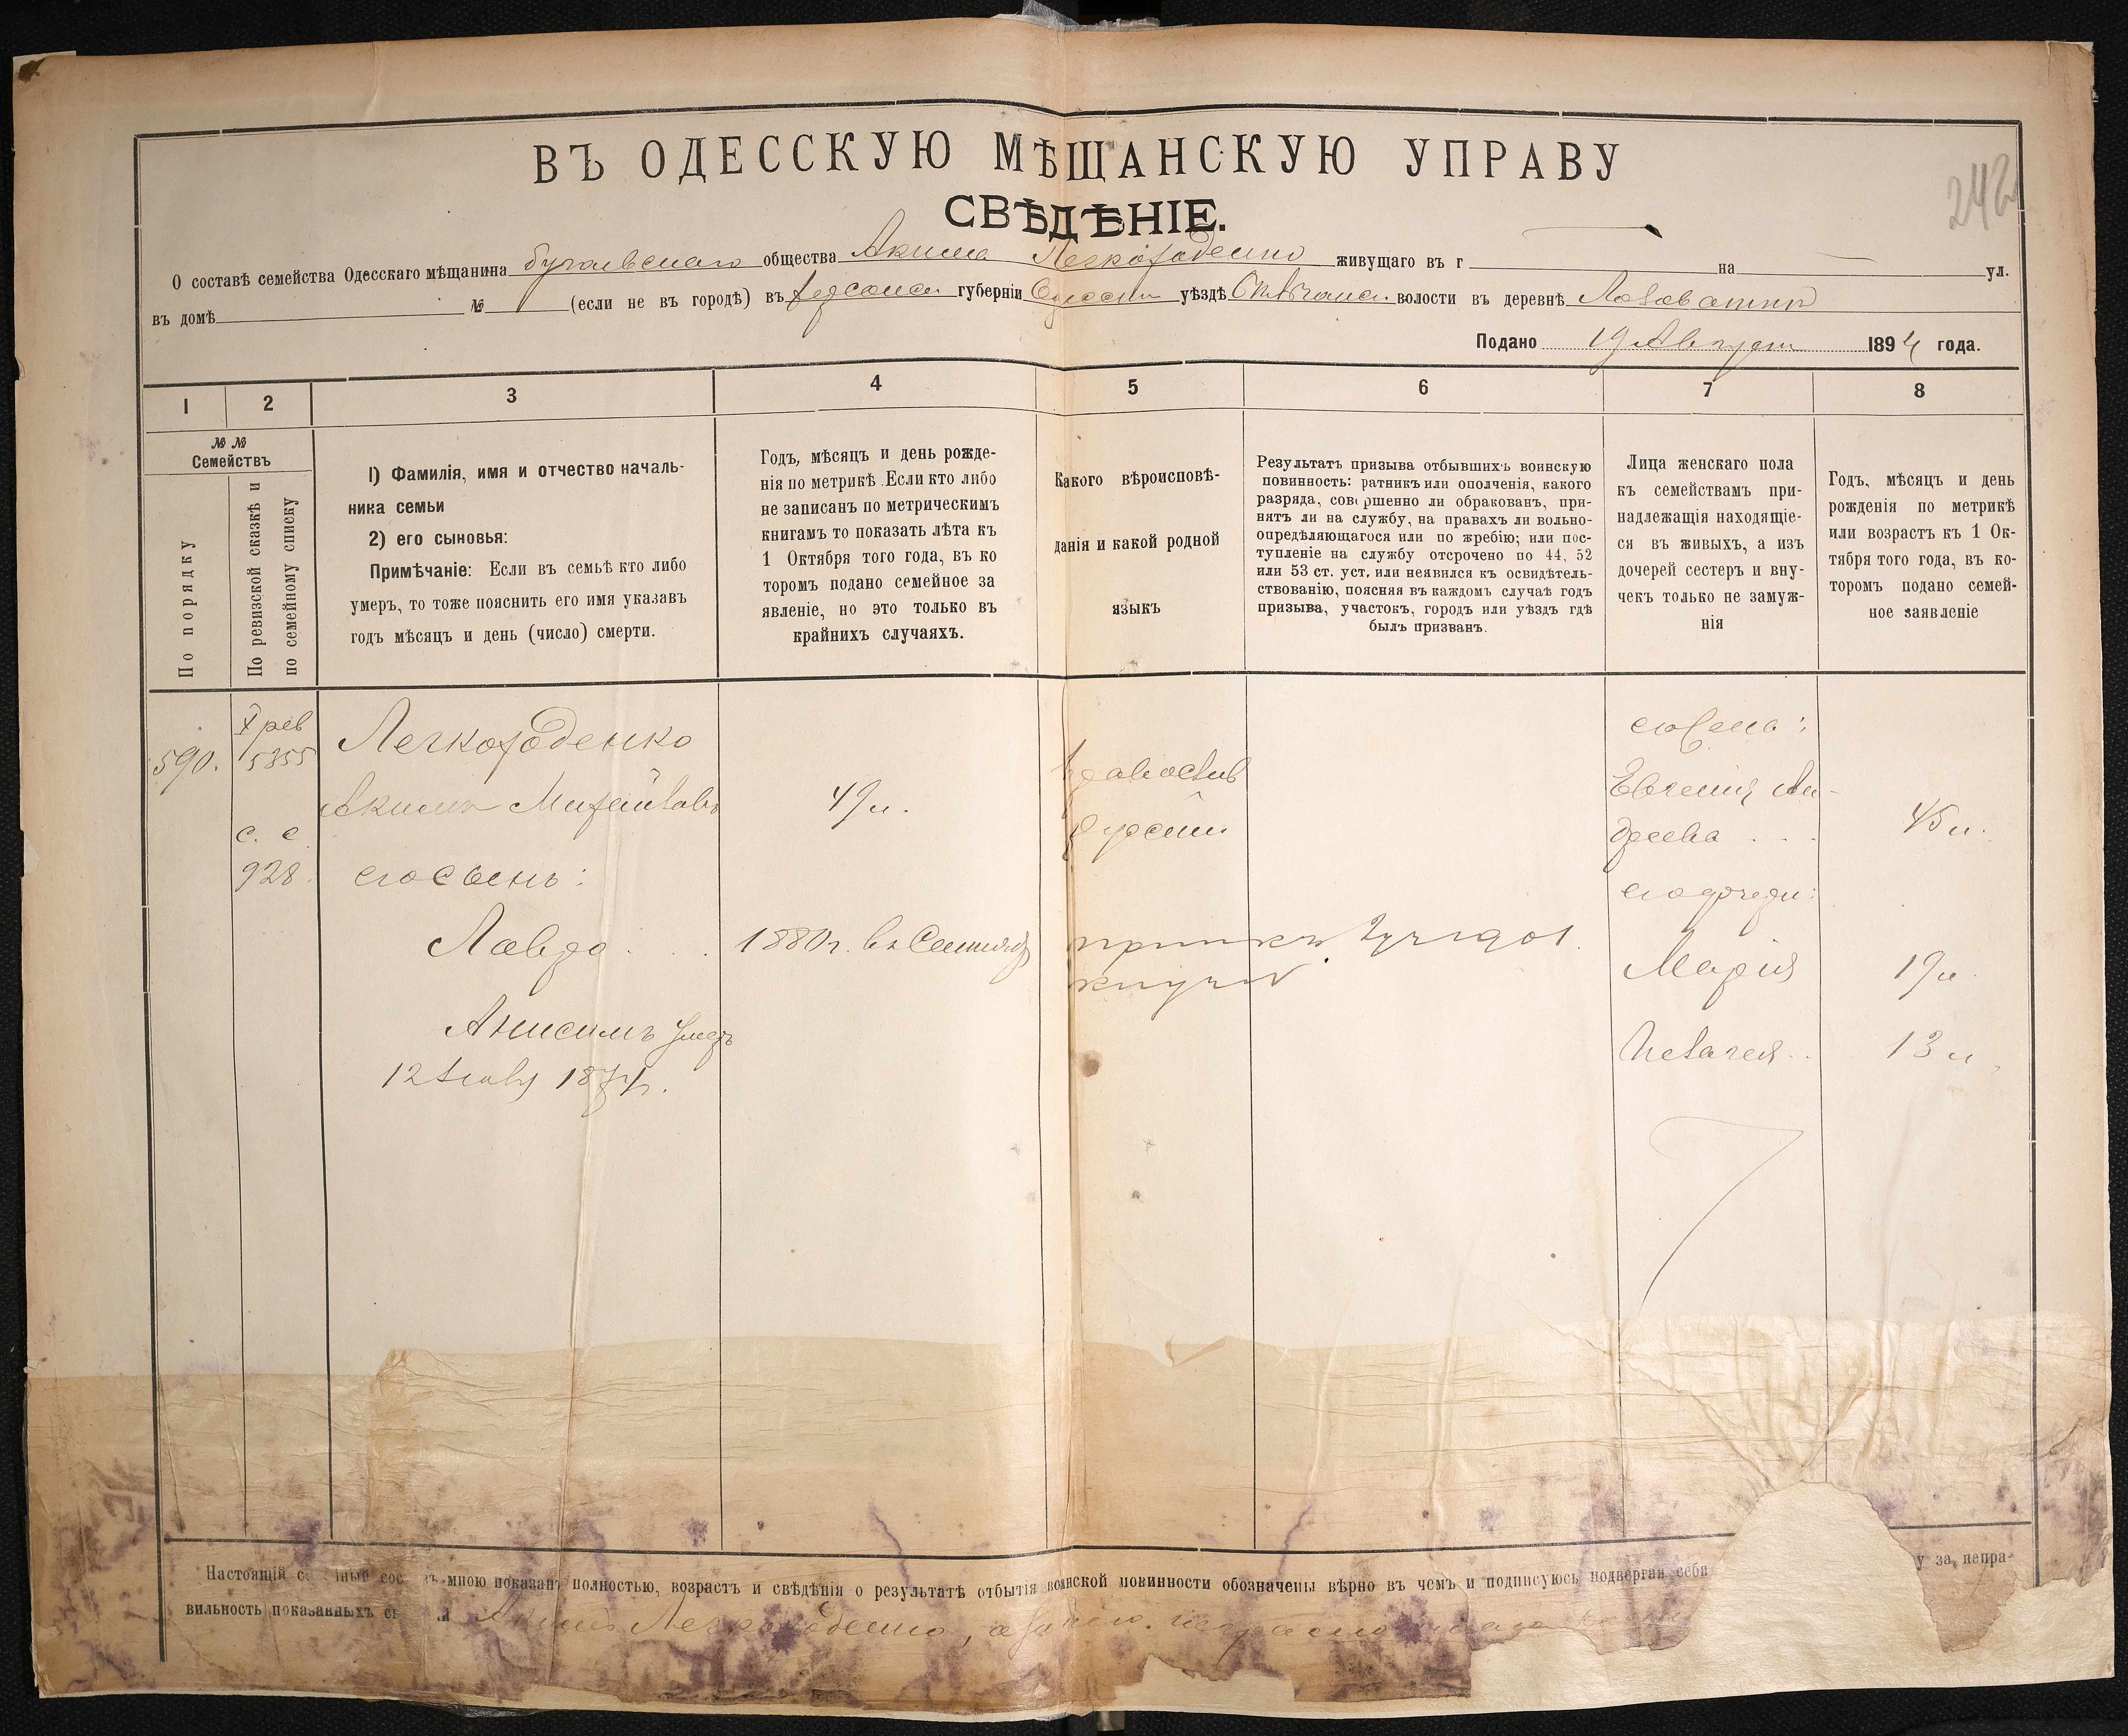 ВЪ ОДЕССКУЮ МѢЩАНСКУЮ УПРАВУ
СВѢДѢНІЕ.
242
О составѣ семейства Одесскаго мѣщанина общества Акима Легкоходенко живущаго въ г на ул.
въ домѣ № (если не въ городѣ) въ Херсонск. губерніи Одесск уѣздѣ волости въ деревнѣ
Подано 19 Августа 1894 года.
1 2 3 4 5 6 7 8
№ № Семействъ
По порядку
По ревизской сказкѣ и
по семейному списку
1) Фамилія, имя и отчество началь-
ника семьи
2) его сыновья:
Примѣчаніе: Если въ семьѣ кто либо
умеръ, то тоже пояснить его имя указавъ
годъ мѣсяцъ и день (число) смерти.
Годъ, мѣсяцъ и день рожде-
нія по метрикѣ. Если кто либо
не записанъ по метрическимъ
книгамъ то показать лѣта къ
1 Октября того года, въ ко
торомъ подано семейное за
явленіе, но это только въ
крайнихъ случаяхъ.
Какого вѣроисповѣ-
данія и какой родной
языкъ
Результатъ призыва отбывшихъ воинскую
повинность: ратникъ или ополченія, какого
разряда, совершенно ли обракованъ, при-
нятъ ли на службу, на правахъ ли вольно-
опредѣляющагося или по жребію; или пос-
тупленіе на службу отсрочено по 44, 52
или 53 ст. уст. или неявился къ освидѣтель-
ствованію, поясняя въ каждомъ случаѣ годъ
призыва, участокъ, городъ или уѣздъ гдѣ
былъ призванъ.
Лица женскаго пола
къ семействамъ при-
надлежащія находящіе-
ся въ живыхъ, а изъ
дочерей сестеръ и вну-
чекъ только не замуж-
нія
Годъ, мѣсяцъ и день
рожденія по метрикѣ
или возрастъ къ 1 Ок-
тября того года, въ ко-
торомъ подано семей-
ное заявленіе
590.
X рев
5355
с. с
928.
Легкоходенко
Акимъ Михайловъ
его сынъ:
Лавръ
Анисимъ умеръ
12 1874г.
49 л.
1880 г. въ Сентябр
православ
русскій
его жена:
Евгенія Ан-
дреева
его дочери:
Марія
Пелагея
45 л.
19 л.
13 л.
Настоящій с ный сос въ мною показанъ полностью, возрастъ и свѣдѣнія о результатѣ отбытія воинской повинности обозначены вѣрно въ чемъ и подписуюсь подвергая себя у за непра-
вильность показанныхъ св Акимъ Легкоходенко, а за него неграмотнаго